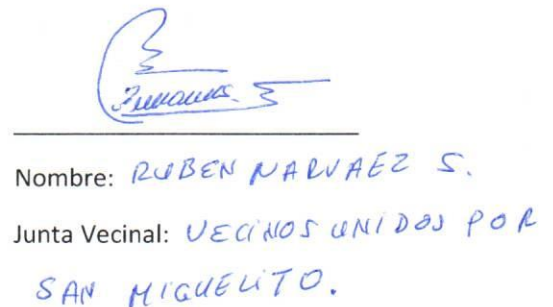 Nombre: RUBEN NARVAEZ S.
Junta Vecinal: VECINOS UNIDOS POR
SAN MIGUELITO.